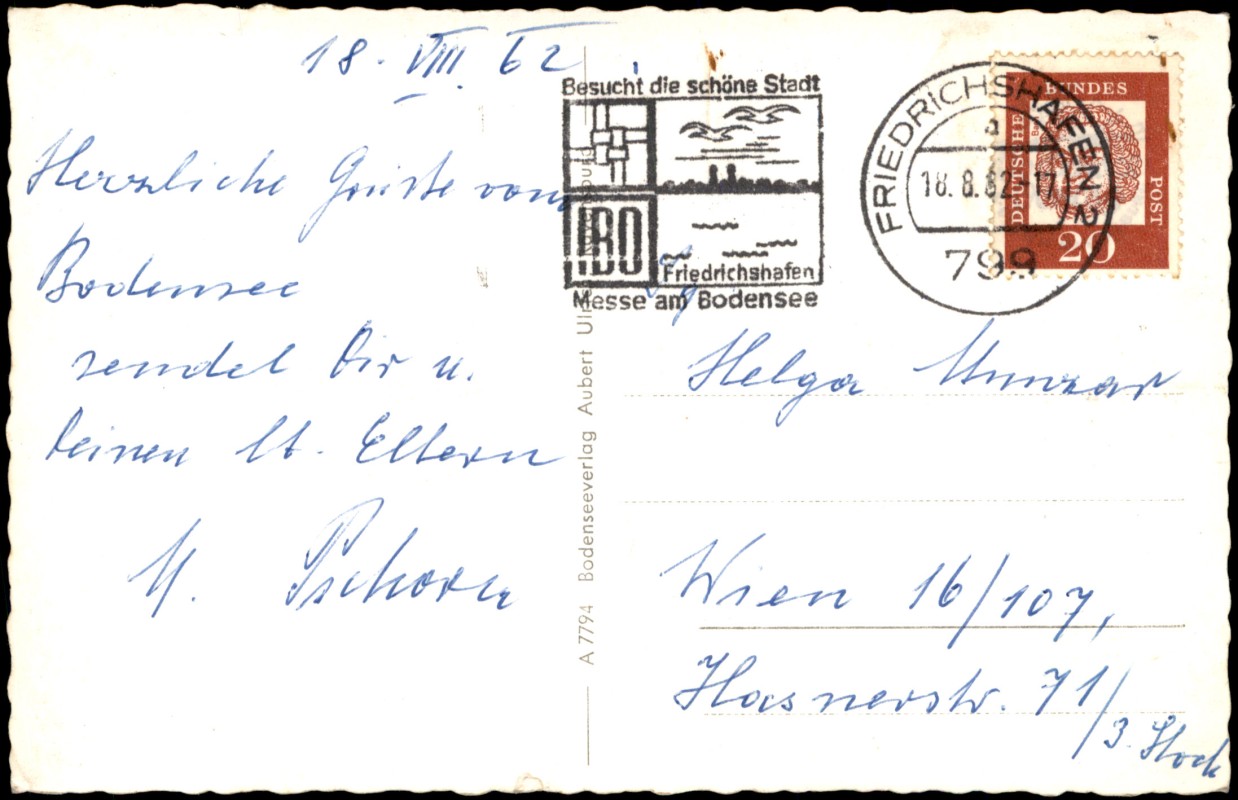 18. VIII 62
Herzliche Grüße vom
Bodensee
sendet Dir u.
Deinen lb. Eltern
M. Pschorn
Besucht die schöne Stadt
IBO
Friedrichshafen
Messe am Bodensee
FRIEDRICHSHAFEN 2
a
18.8.62-17
799
DEUTSCHE
BUNDES
POST
20
A 7794 Bodenseeverlag Aubert
Helga
Wien 16/107,
Hasnerstr. 71/
3. Stock